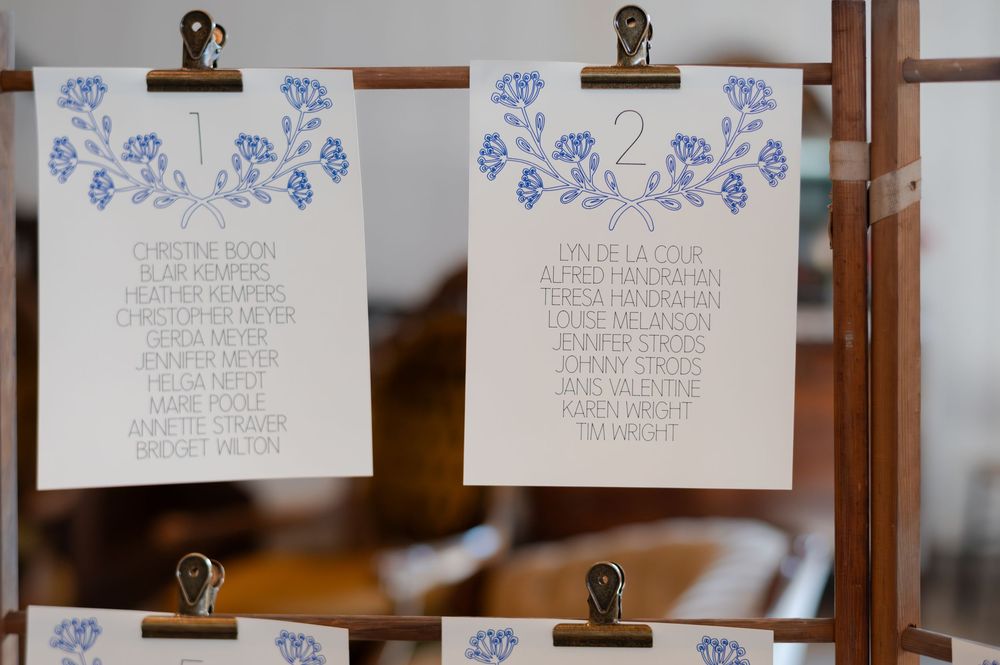 1
CHRISTINE BOON
BLAIR KEMPERS
HEATHER KEMPERS
CHRISTOPHER MEYER
GERDA MEYER
JENNIFER MEYER
HELGA NEFDT
MARIE POOLE
ANNETTE STRAVER
BRIDGET WILTON
2
LYN DE LA COUR
ALFRED HANDRAHAN
TERESA HANDRAHAN
LOUISE MELANSON
JENNIFER STRODS
JOHNNY STRODS
JANIS VALENTINE
KAREN WRIGHT
TIM WRIGHT